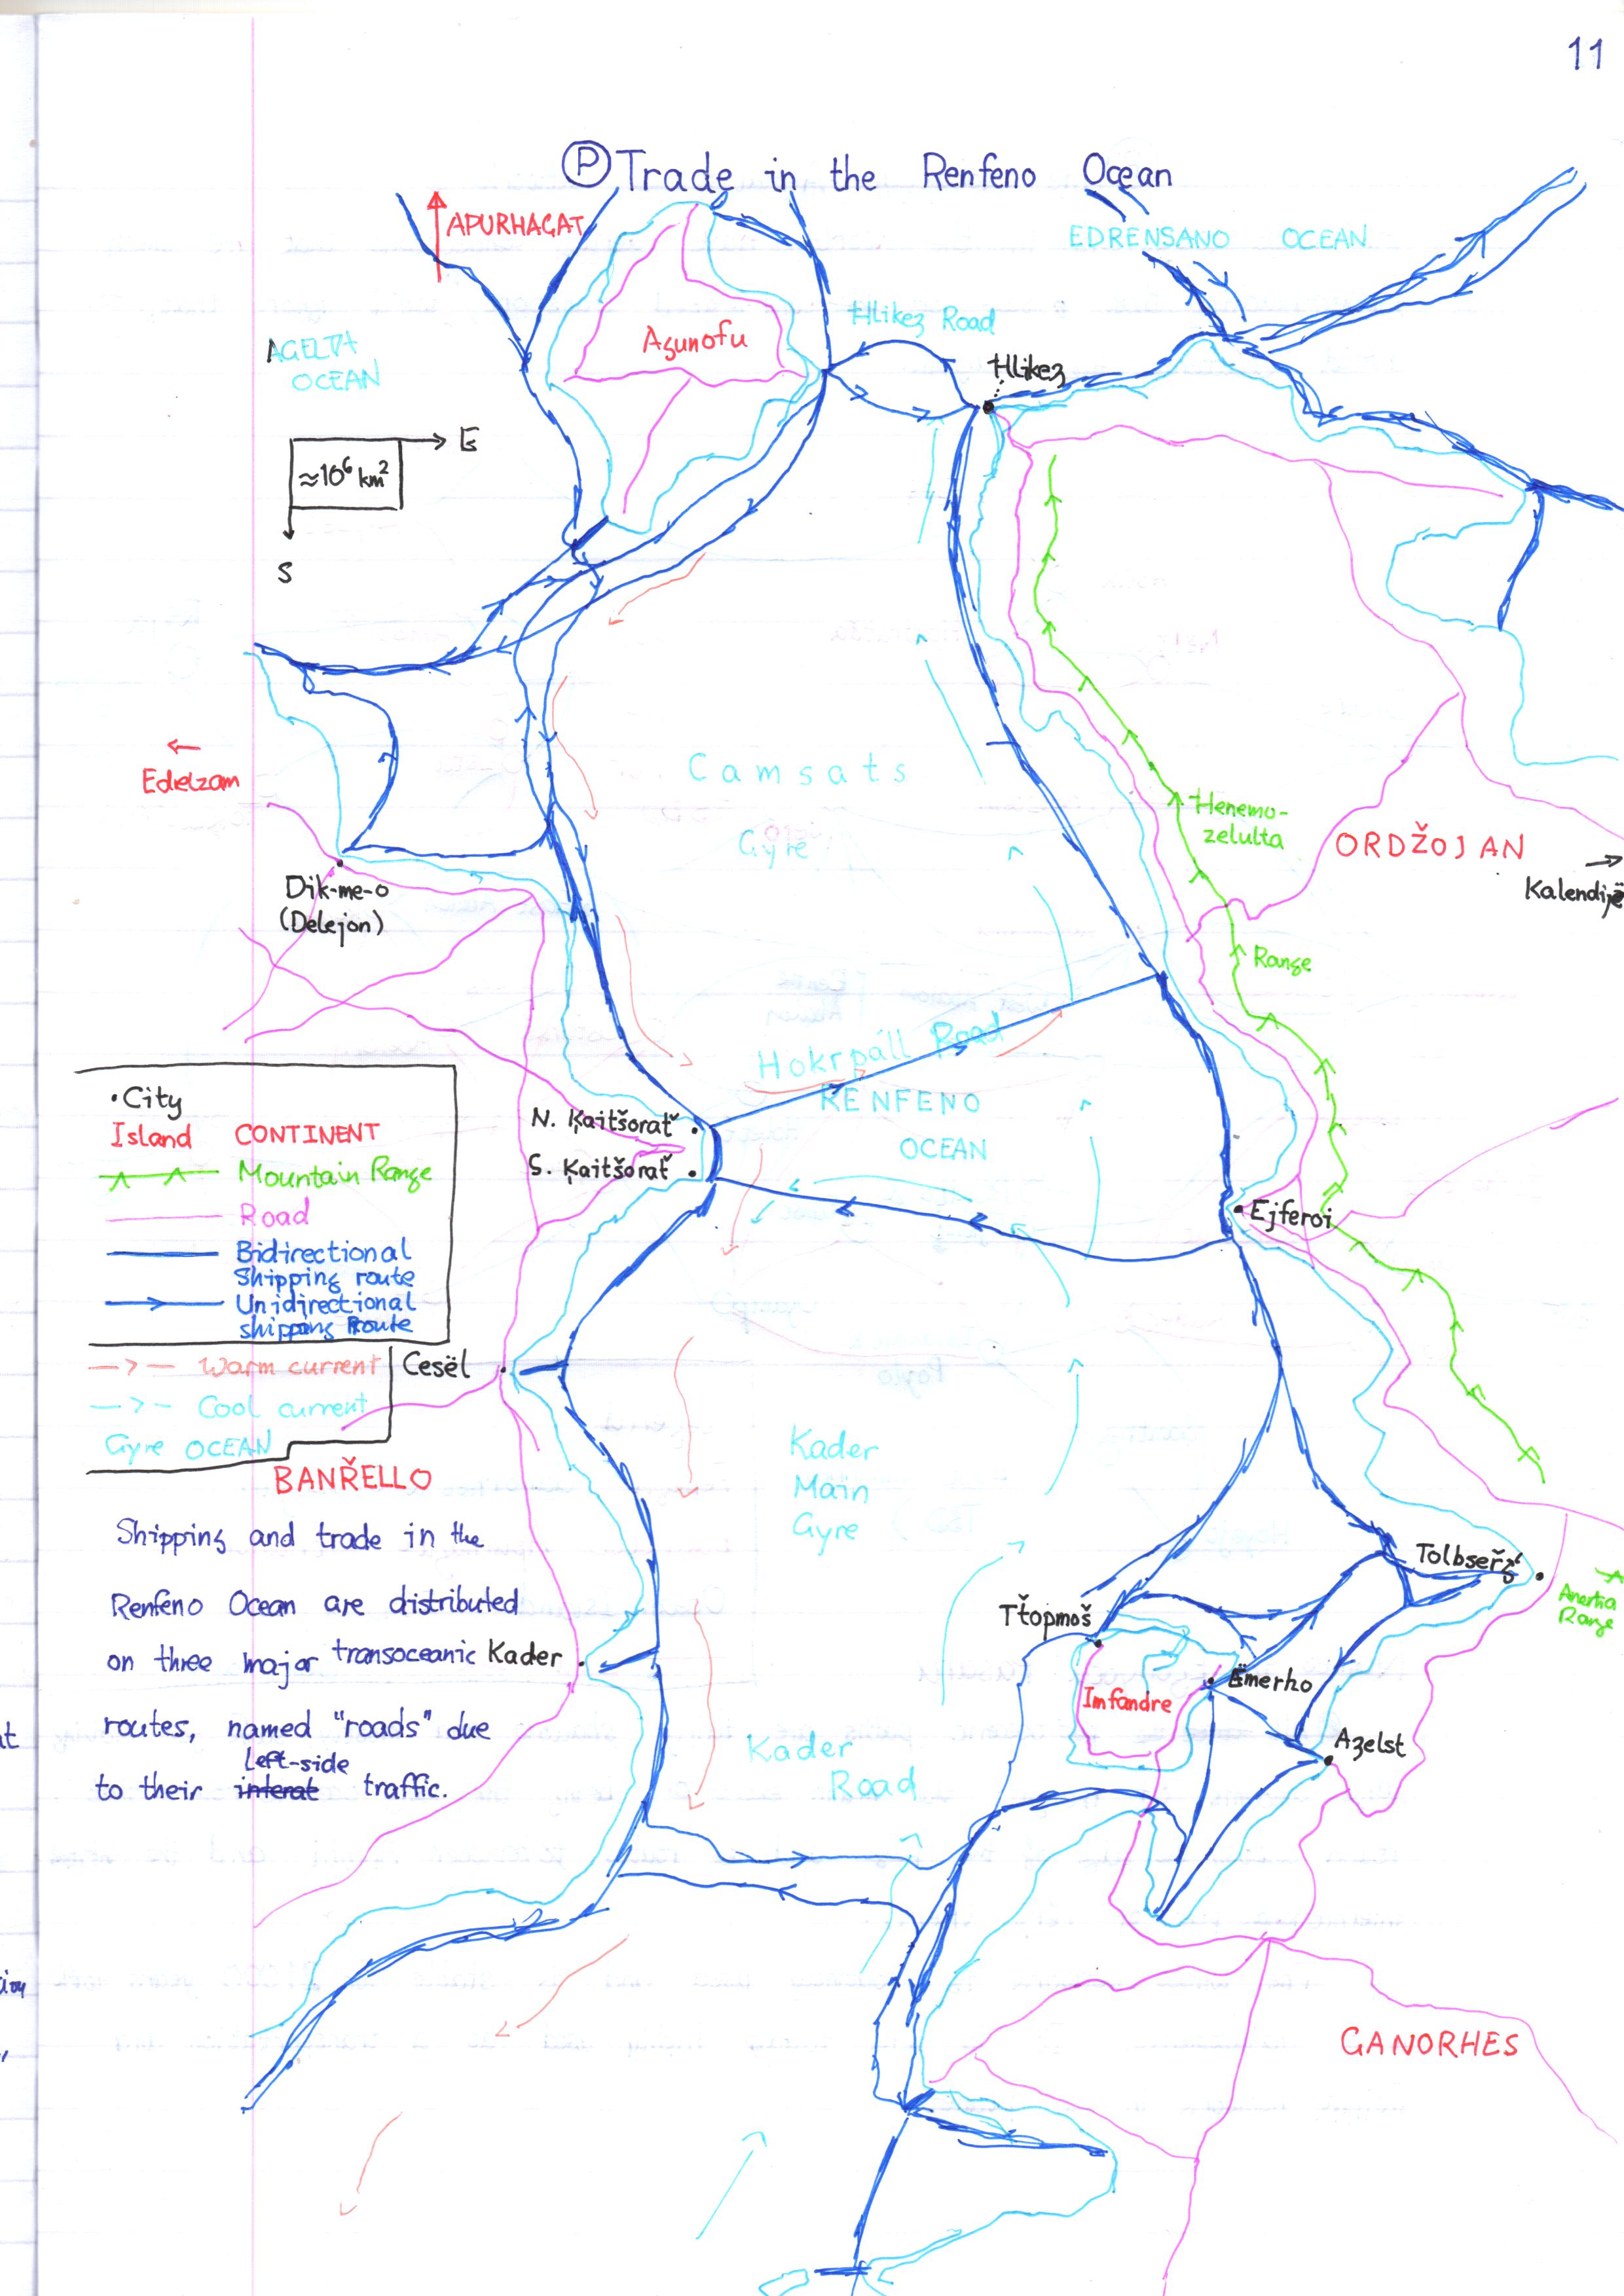 11
Ⓟ Trade in the Renfeno Ocean
APURHAGAT
EDRENSANO OCEAN
Ħlikez Road
AGELTA
OCEAN
Agunofu
Ħlikez
E
≈10⁶ km²
S
Camsats
Gyre
Edelzam
Ħenemo-
zelulta
Range
ORDŽOJAN
Kalendijë
Dik-me-o
(Delejon)
Hokrpáll Road
RENFENO
OCEAN
N. Ķaitšorať
S. Ķaitšorať
Ejferoi
•City
Island CONTINENT
Mountain Range
Road
Bidirectional
Shipping route
Unidirectional
shipping Route
Warm current
Cool current
Gyre OCEAN
Cesël
BANŘELLO
Kader
Main
Gyre
Shipping and trade in the
Renfeno Ocean are distributed
on three major transoceanic
routes, named "roads" due
left-side
to their interat traffic.
Kader
Tolbseřž
Anertia
Range
Tťopmoš
Emerho
Imfandre
Azelst
Kader
Road
GANORHES